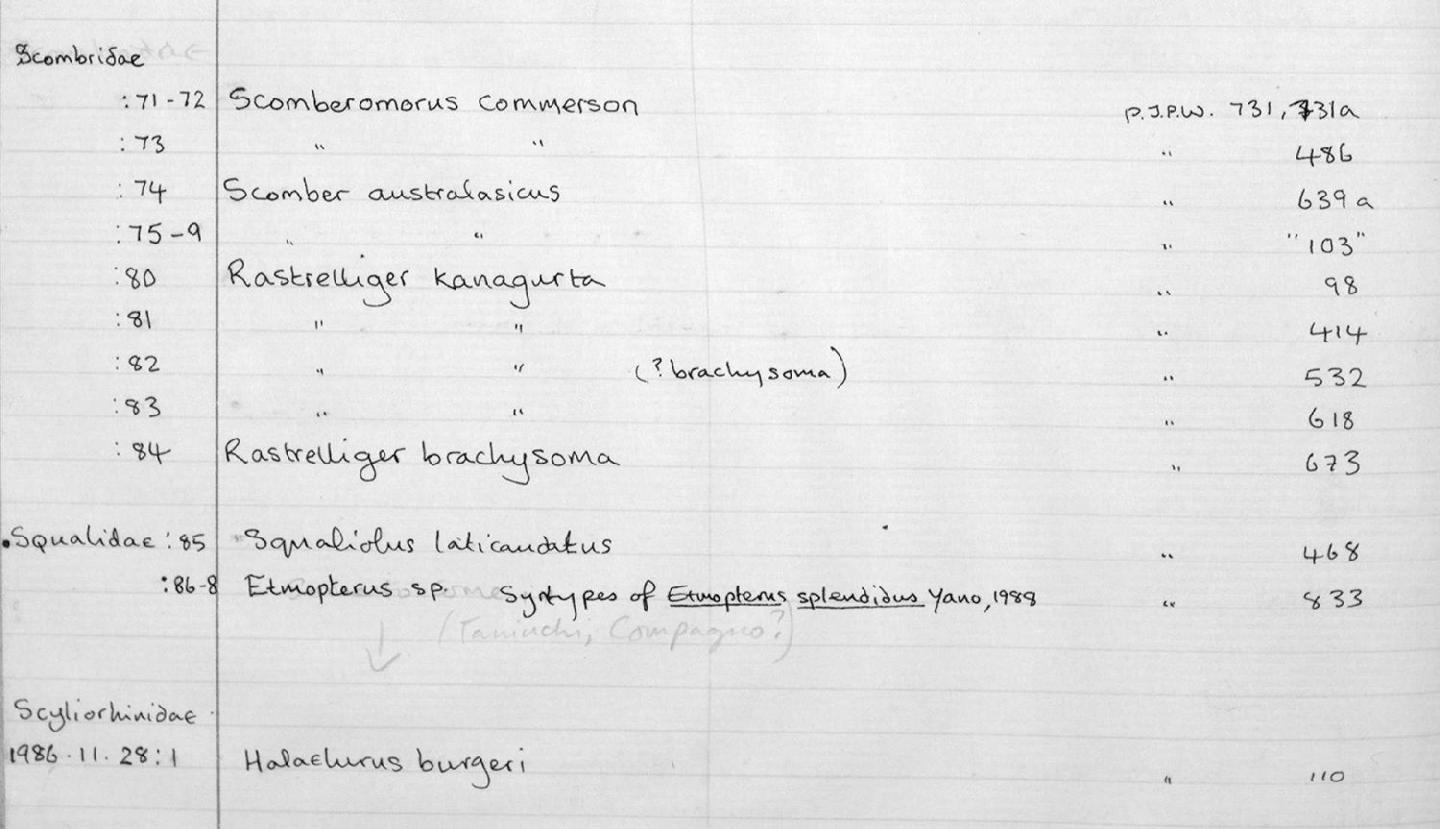 Scombridae
:71-72 Scomberomorus commerson P.J.P.W. 731, 731a
:73 " " " 486
:74 Scomber australasicus " 639a
:75-9 " " " "103"
:80 Rastrelliger kanagurta " 98
:81 " " " 414
:82 " " (?brachysoma) " 532
:83 " " " 618
:84 Rastrelliger brachysoma " 673
Squalidae :85 Squaliolus laticaudatus " 468
:86-8 Etmopterus sp. Syntypes of Etmopterus splendidus Yano, 1988 " 833
(Taniuchi, Compagno?)
Scyliorhinidae
1986.11.28:1 Halaelurus burgeri " 110